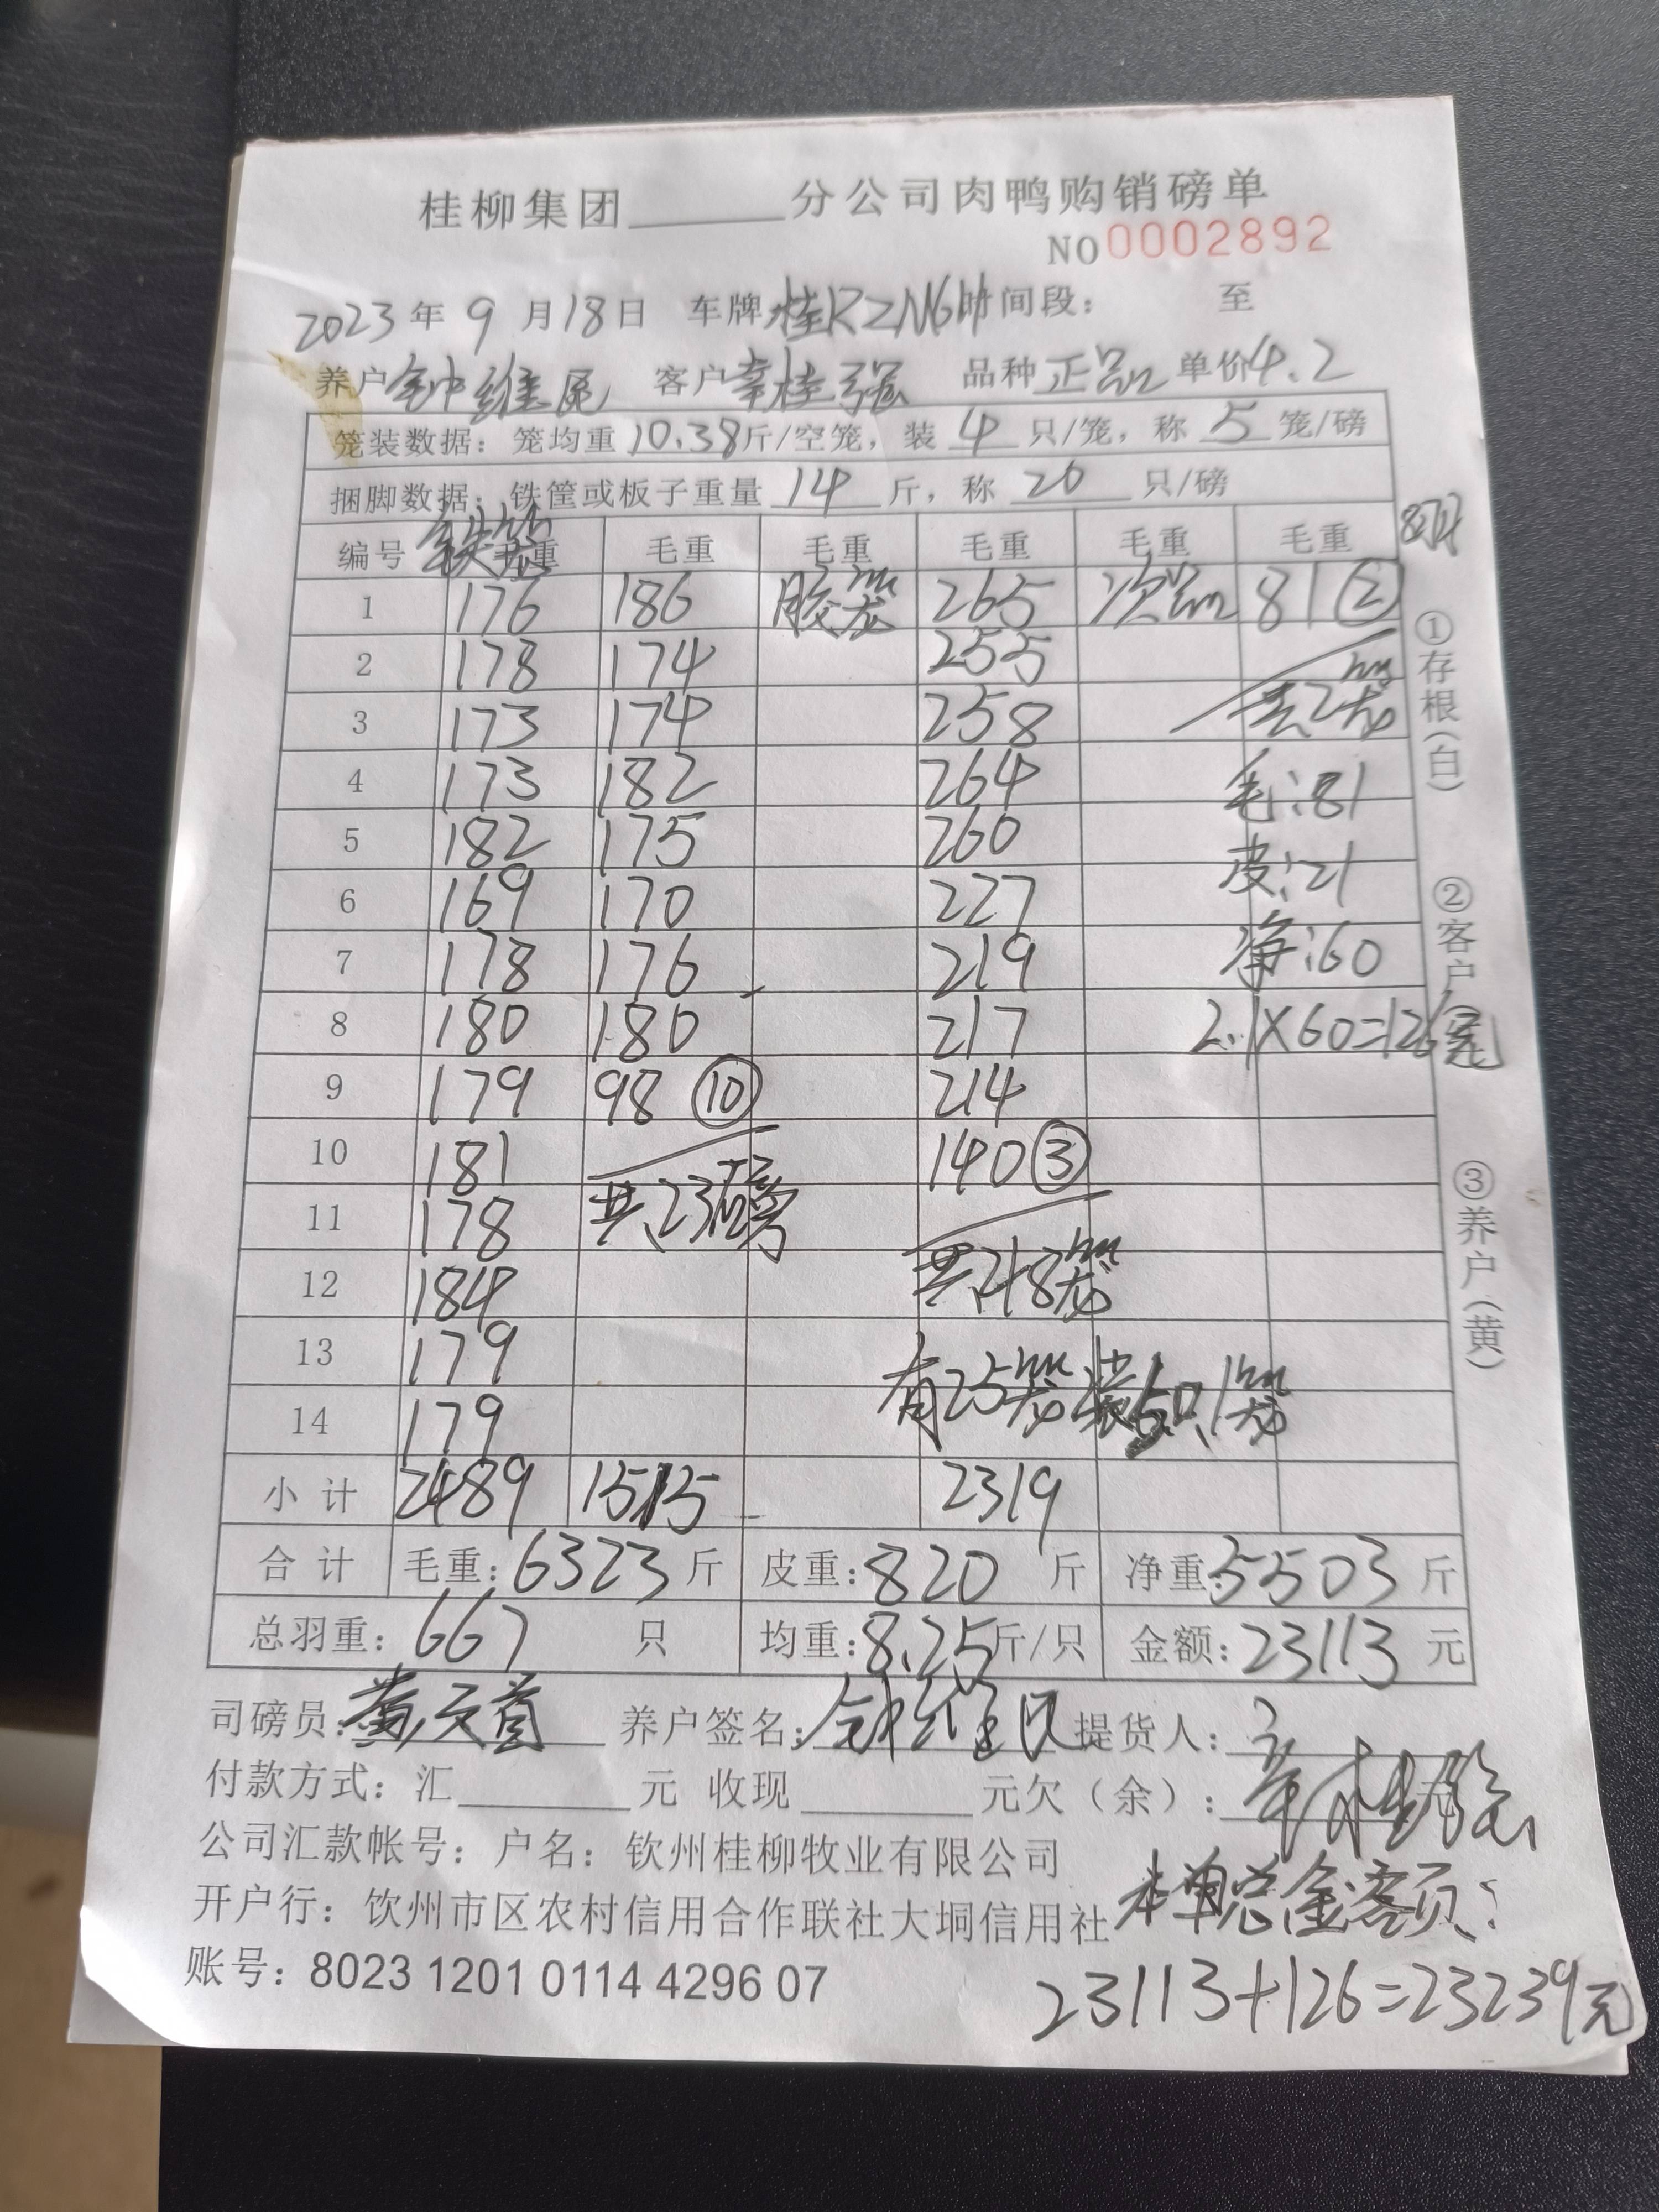 桂柳集团______分公司肉鸭购销磅单
NO 0002892
2023年9月18日 车牌桂KZN6 时间段: 至
养户钟维民 客户辛桂强 品种正品 单价4.2
笼装数据: 笼均重10.38斤/空笼, 装4只/笼, 称5笼/磅
捆脚数据: 铁筐或板子重量14斤, 称20只/磅
编号 铁笼 毛重 毛重 毛重 毛重 毛重 毛重 8只
1 176 186 胶笼 265 次品 81②
2 178 174 255 共2笼
3 173 174 258
4 173 182 264 毛:81
5 182 175 260 皮:21
6 169 170 227
7 178 176 219 净:60
8 180 180 217 2.1×60=126元
9 179 98⑩ 214
10 181 140③
11 178 共23磅
12 184 共48笼
13 179
14 179 有25笼装5只/笼
小计 2489 1515 2319
合计 毛重:6323斤 皮重:820斤 净重:5503斤
总羽重:667只 均重:8.25斤/只 金额:23113元
司磅员: 养户签名:钟维民 提货人:辛桂强
付款方式: 汇______元 收现______元欠(余):______元
公司汇款帐号: 户名: 钦州桂柳牧业有限公司
开户行: 钦州市区农村信用合作联社大垌信用社
本单总金额:
账号: 8023 1201 0114 4296 07
23113+126=23239元
①存根(白) ②客户 ③养户(黄)